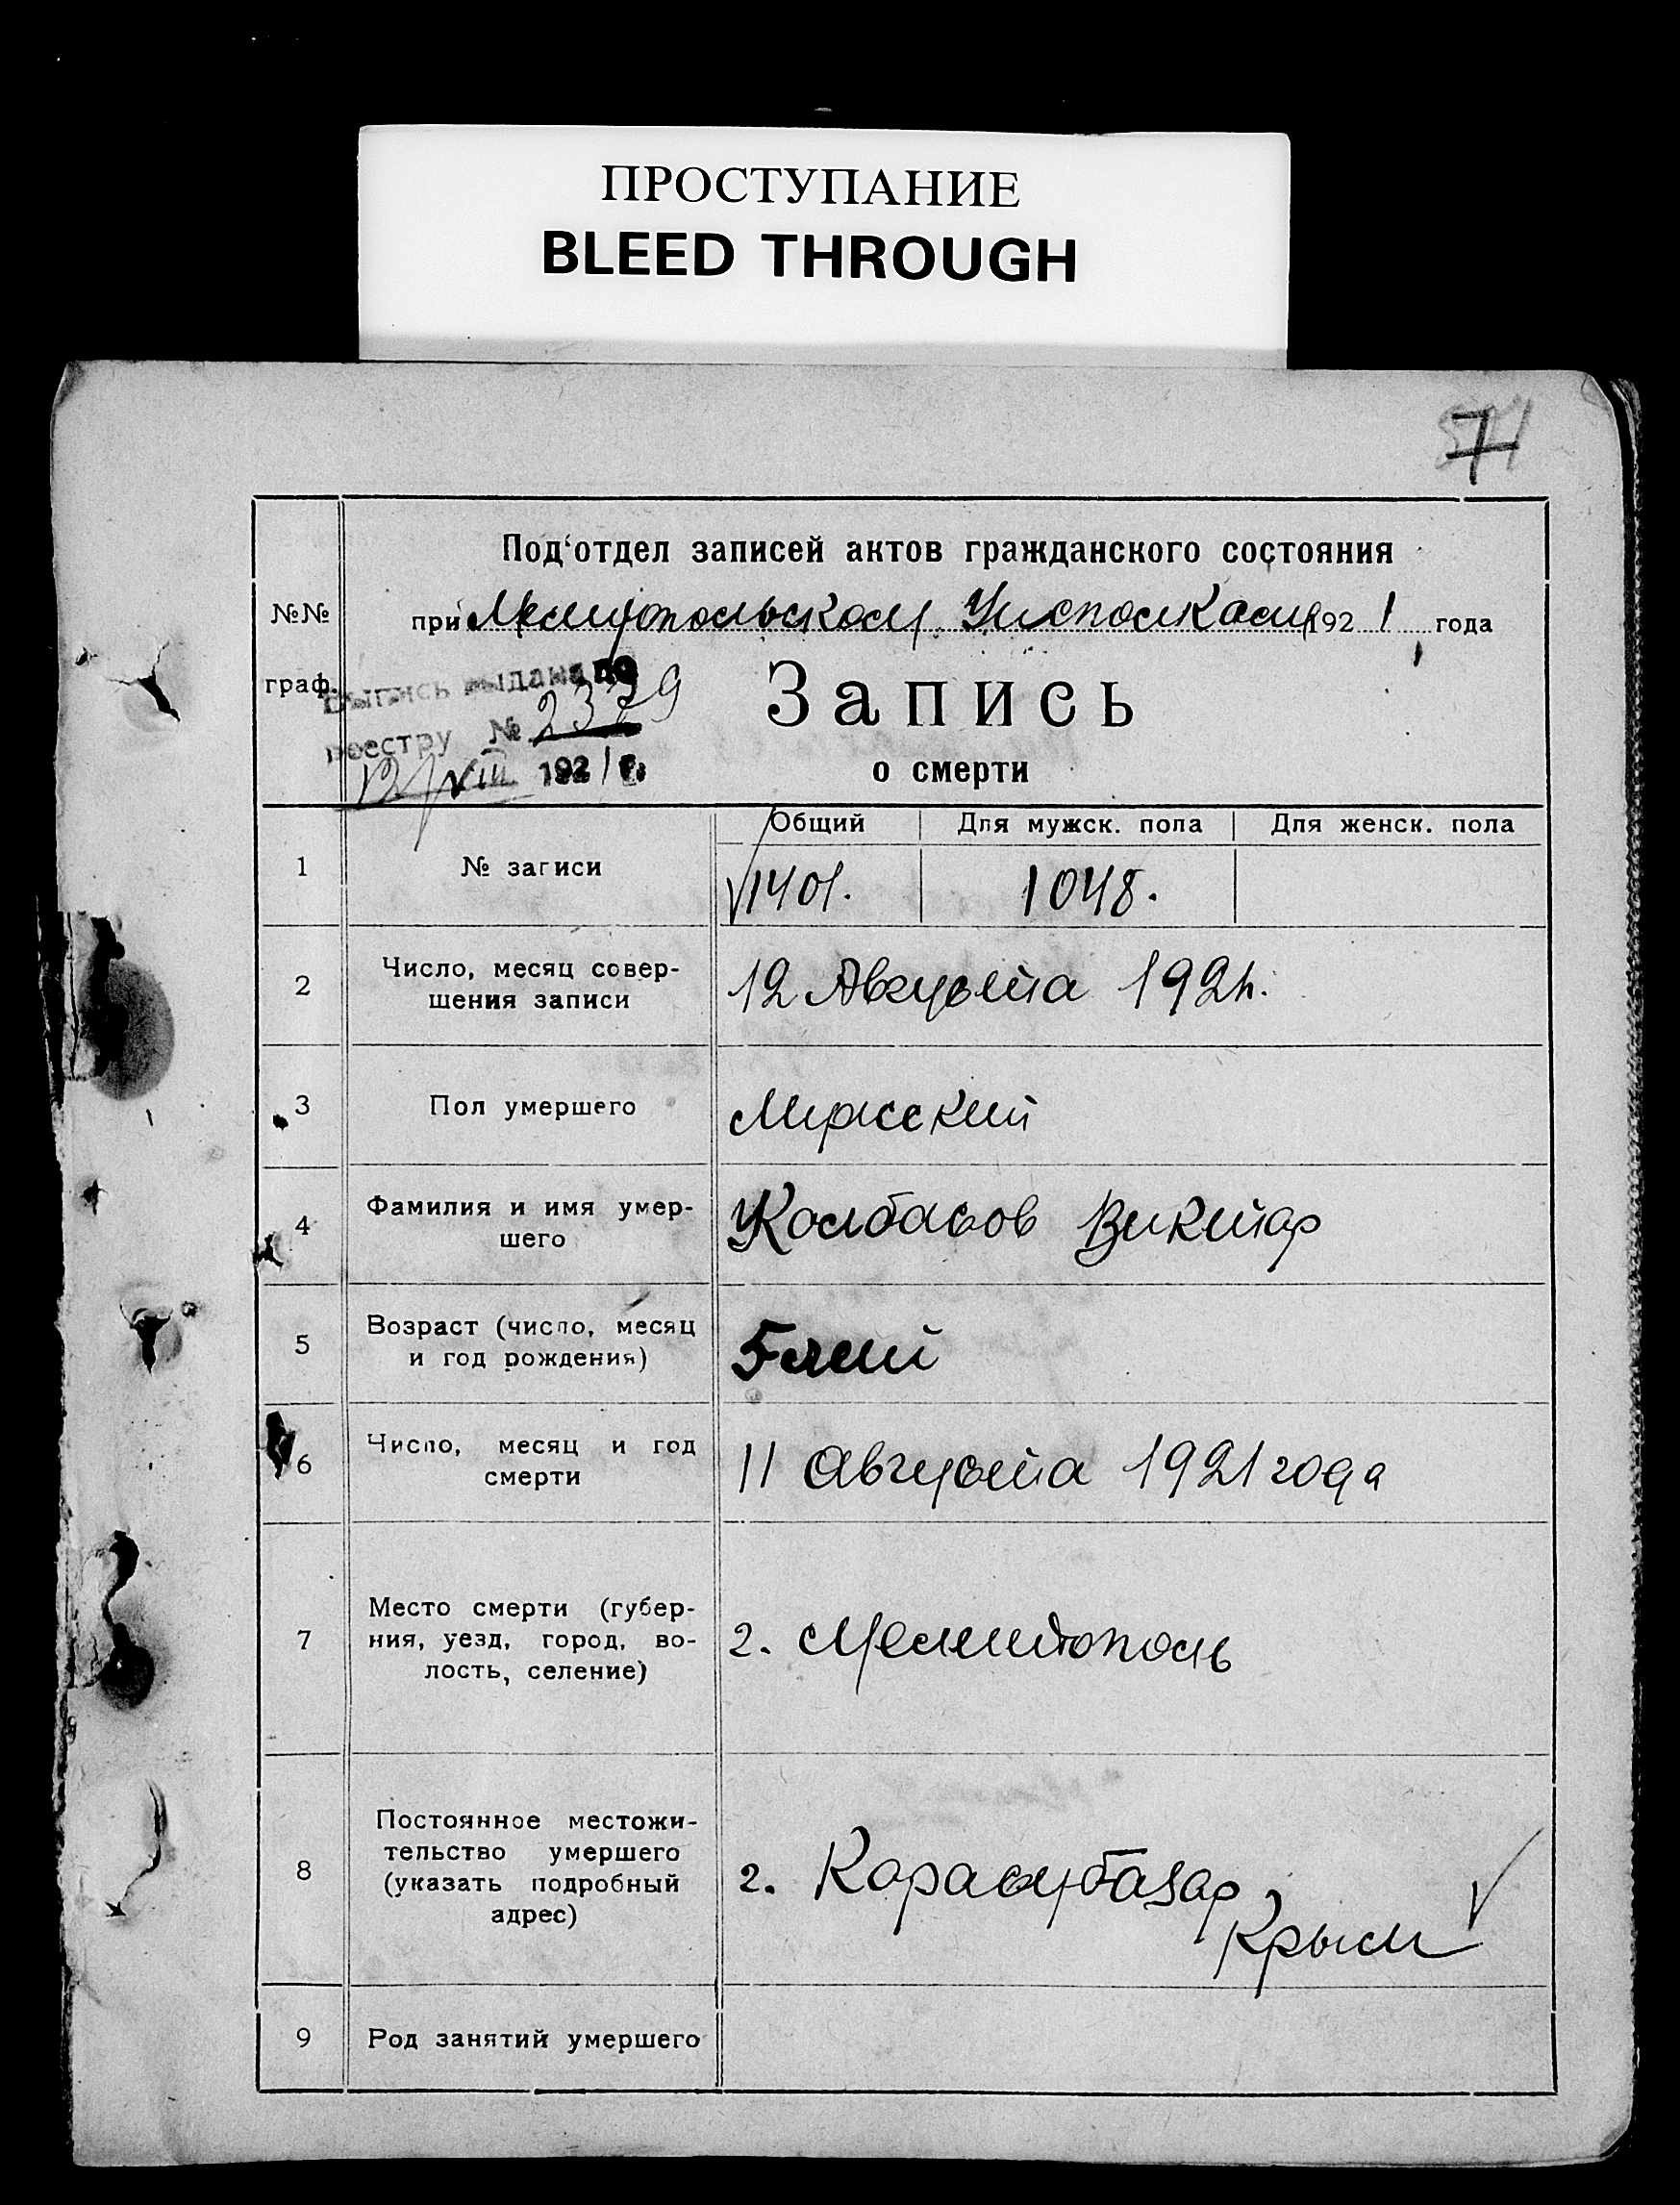 ПРОСТУПАНИЕ
BLEED THROUGH
Под‘отдел записей актов гражданского состояния
№№ при Мелитопольском Уисполкоме 1921 года
граф.
Выпись выдана по
реестру № 2379
12/VIII 1921 г.
Запись
о смерти
Общий Для мужск. пола Для женск. пола
1 № записи 1401. 1048.
2 Число, месяц совер-
шения записи 12 Августа 1921г.
3 Пол умершего Мужский
4 Фамилия и имя умер-
шего Колбасов Виктор
5 Возраст (число, месяц
и год рождения) 5 лет
6 Число, месяц и год
смерти 11 Августа 1921 года
7 Место смерти (губер-
ния, уезд, город, во-
лость, селение) г. Мелитополь
8 Постоянное местожи-
тельство умершего
(указать подробный
адрес) г. Карасубазар,
Крым
9 Род занятий умершего